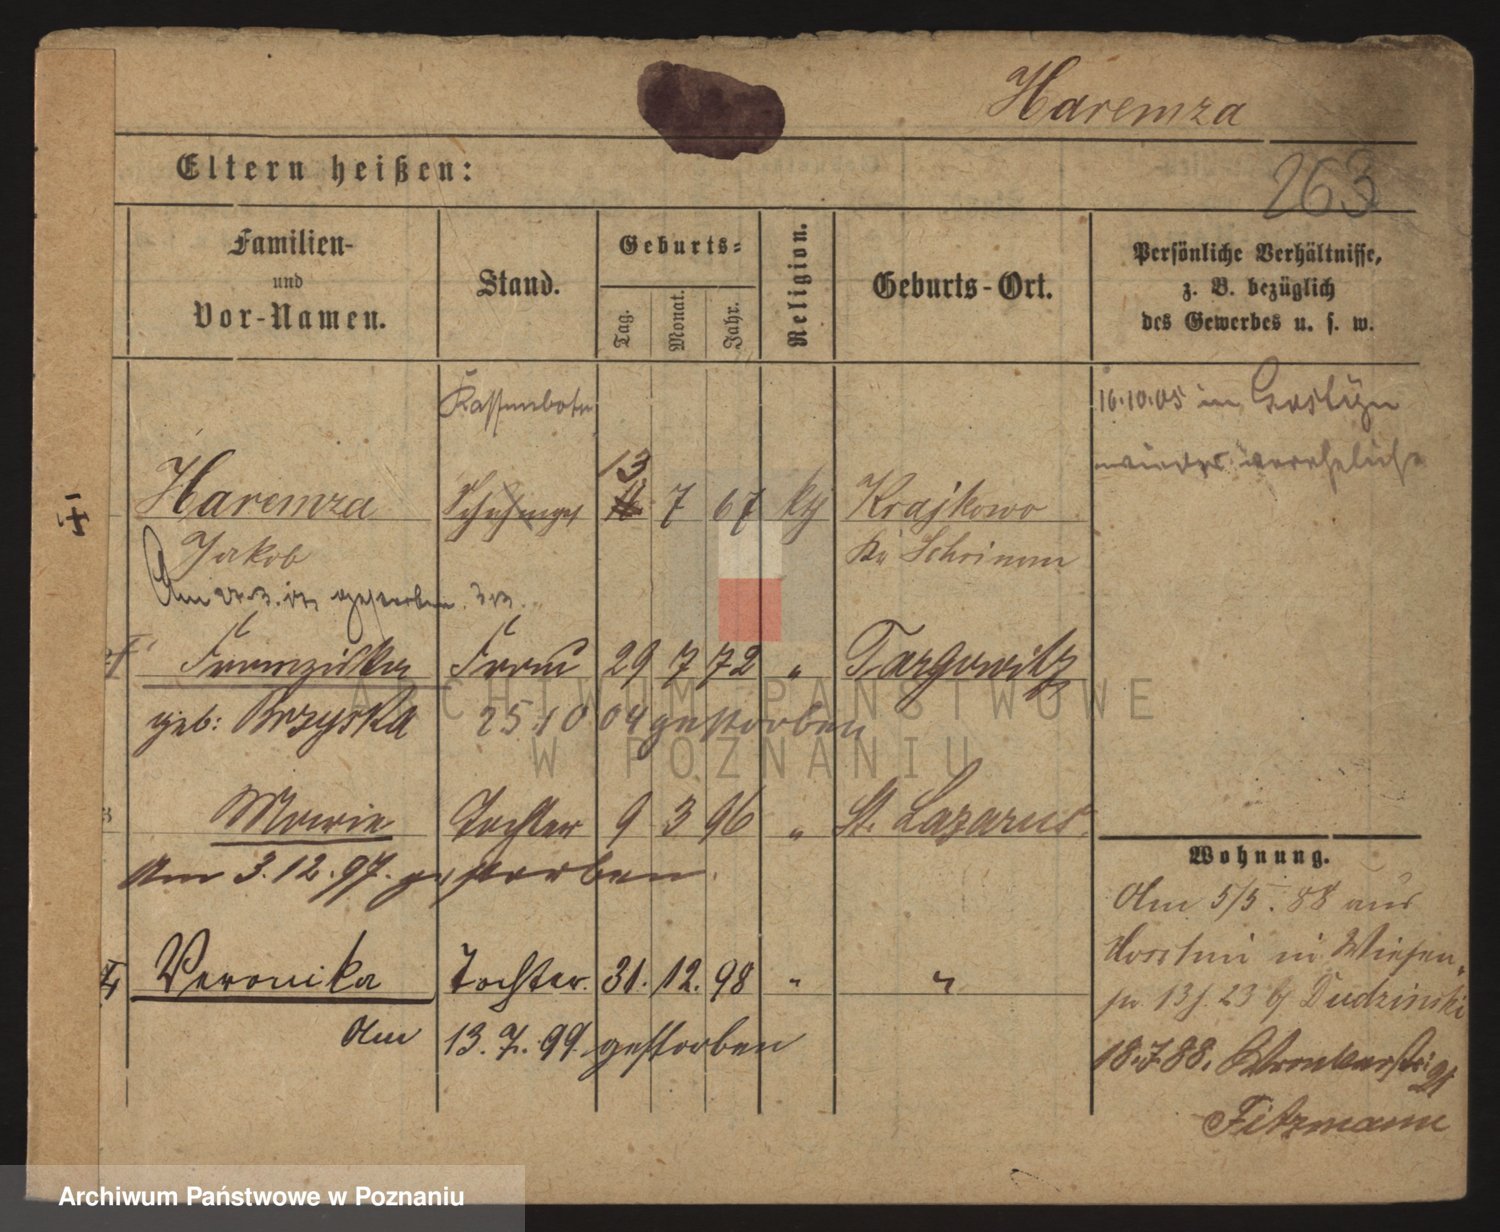 Haremza
263
Eltern heißen:
Familien-
und
Vor-Namen.
Stand.
Geburts-
Tag.
Monat.
Jahr.
Religion.
Geburts-Ort.
Persönliche Verhältnisse,
z. B. bezüglich
des Gewerbes u. s. w.
Kassenbote
16.10.05 in Gostyn
wieder verehelicht
13
Haremza 7 67 Krajkowo
Jakob Kr Schrimm
Am gestorben.
Franziska Frau 29 7 72 " Targowitz
geb: Brzyska 25 10 04 gestorben
Marie Tochter 9 3 96 " St. Lazarus
Am 3.12.97. gestorben.
Veronika Tochter. 31. 12. 98 " "
Am 13.7.99. gestorben
Wohnung.
Am 5/5. 88 aus
in Wiesen
13 23 b/ Dudzinski
18.7.88.
Fitzmann
ARCHIWUM PAŃSTWOWE
W POZNANIU
Archiwum Państwowe w Poznaniu